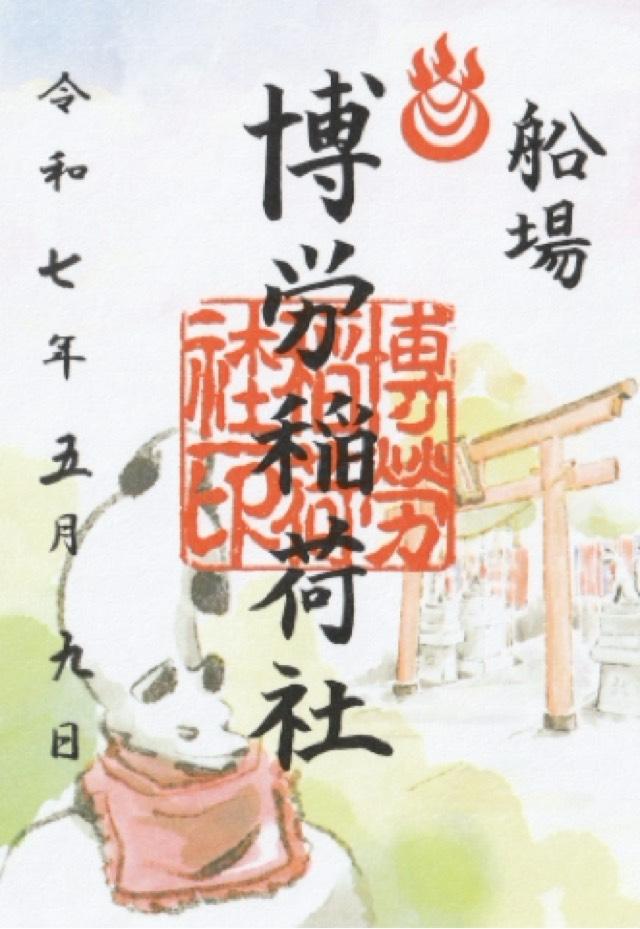 船場
博労稲荷社
博勞稲荷社印
令和七年五月九日